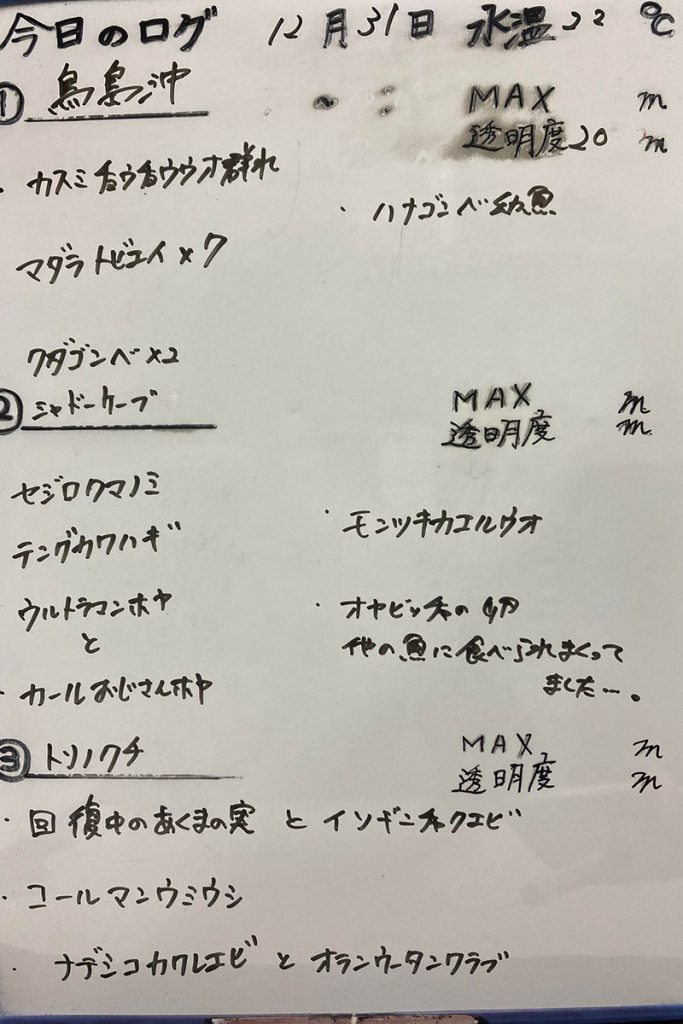 今日のログ 12月31日 水温22℃
① 鳥島沖 MAX m
透明度20 m
・カスミチョウチョウウオ群れ
・ハナゴンベ幼魚
マダラトビエイ×7
クダゴンベ×2
② シャドーケーブ MAX m
透明度 m
セジロクマノミ
テングカワハギ
ウルトラマンホヤ
と
・カールおじさんホヤ
・モンツキカエルウオ
・オヤビッチャの卵
他の魚に食べられまくって
ました…。
③ トリノクチ MAX m
透明度 m
・回復中のあくまの実 と イソギンチャクエビ
・コールマンウミウシ
・ナデシコカクレエビ と オランウータンクラブ